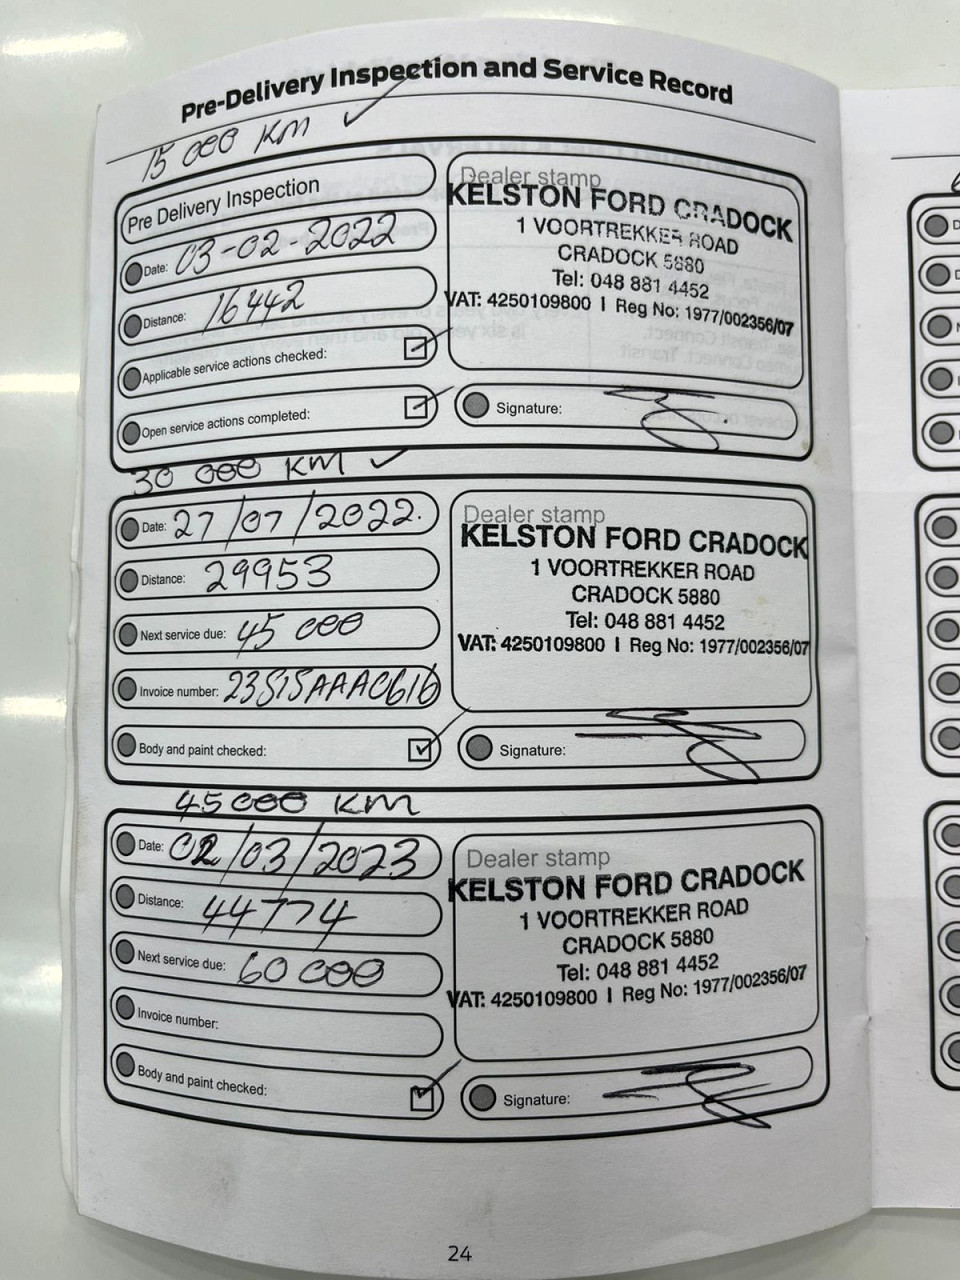 Pre-Delivery Inspection and Service Record
15 000 KM ✓
Pre Delivery Inspection
Date: 03-02-2022
Distance: 16442
Applicable service actions checked:
Open service actions completed:
Dealer stamp
KELSTON FORD CRADOCK
1 VOORTREKKER ROAD
CRADOCK 5880
Tel: 048 881 4452
VAT: 4250109800 I Reg No: 1977/002356/07
Signature:
30 000 KM ✓
Date: 27/07/2022.
Distance: 29953
Next service due: 45 000
Invoice number: 23515AAAC616
Body and paint checked:
Dealer stamp
KELSTON FORD CRADOCK
1 VOORTREKKER ROAD
CRADOCK 5880
Tel: 048 881 4452
VAT: 4250109800 I Reg No: 1977/002356/07
Signature:
45000 KM
Date: 02/03/2023
Distance: 44774
Next service due: 60 000
Invoice number:
Body and paint checked:
Dealer stamp
KELSTON FORD CRADOCK
1 VOORTREKKER ROAD
CRADOCK 5880
Tel: 048 881 4452
VAT: 4250109800 I Reg No: 1977/002356/07
Signature:
24